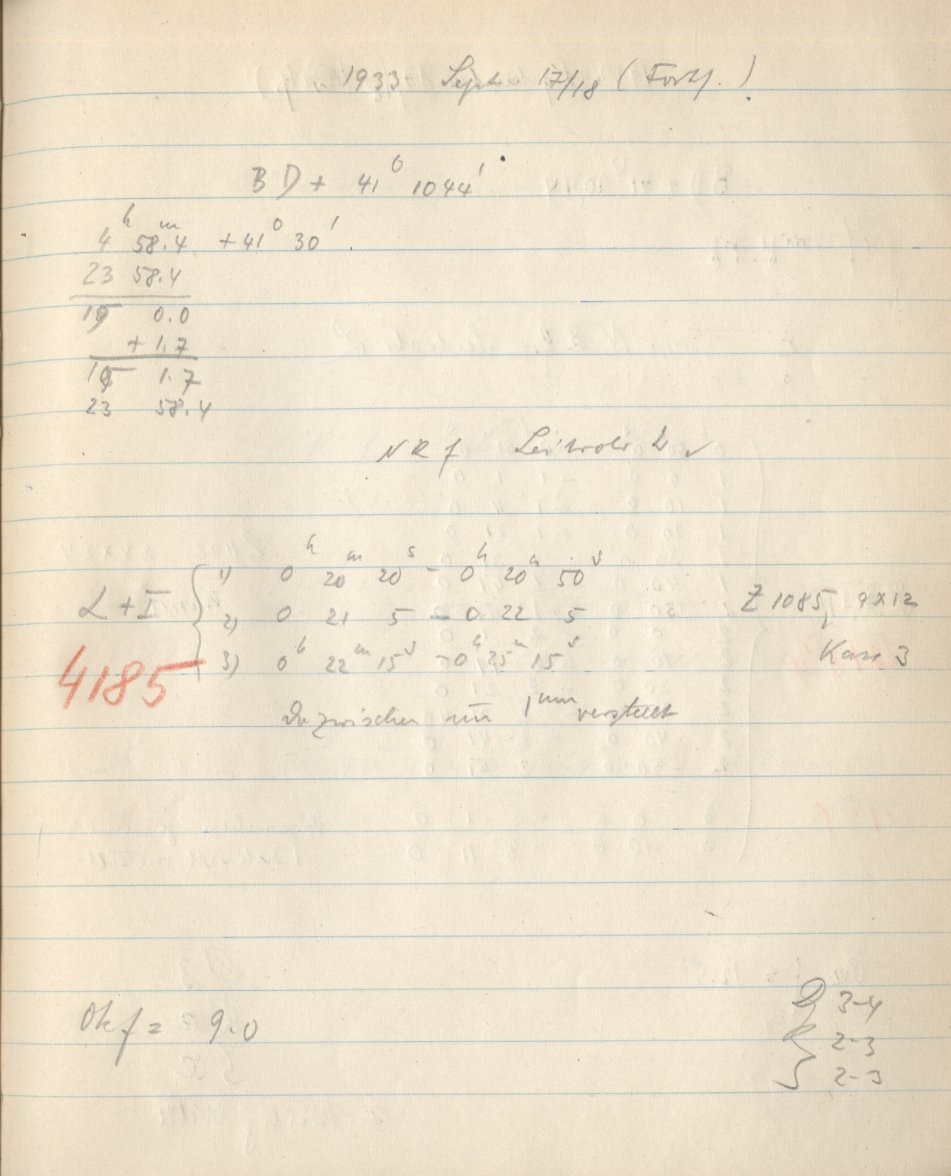 1933 Sept. 17/18 (Forts.)
BD + 41° 1044'
4h 58m.4 +41° 30'.
23 58.4
19 0.0
+ 1.7
19 1.7
23 58.4
NRf Leitrohr L ✓
1) 0h 20m 20s - 0h 20m 50s
L + I 2) 0 21 5 - 0 22 5 Z 1085, 9x12
4185 3) 0h 22m 15s - 0h 25m 15s Kass 3
Dazwischen um 1mm verstellt
Okf = 9.0
D 3-4
R 2-3
S 2-3